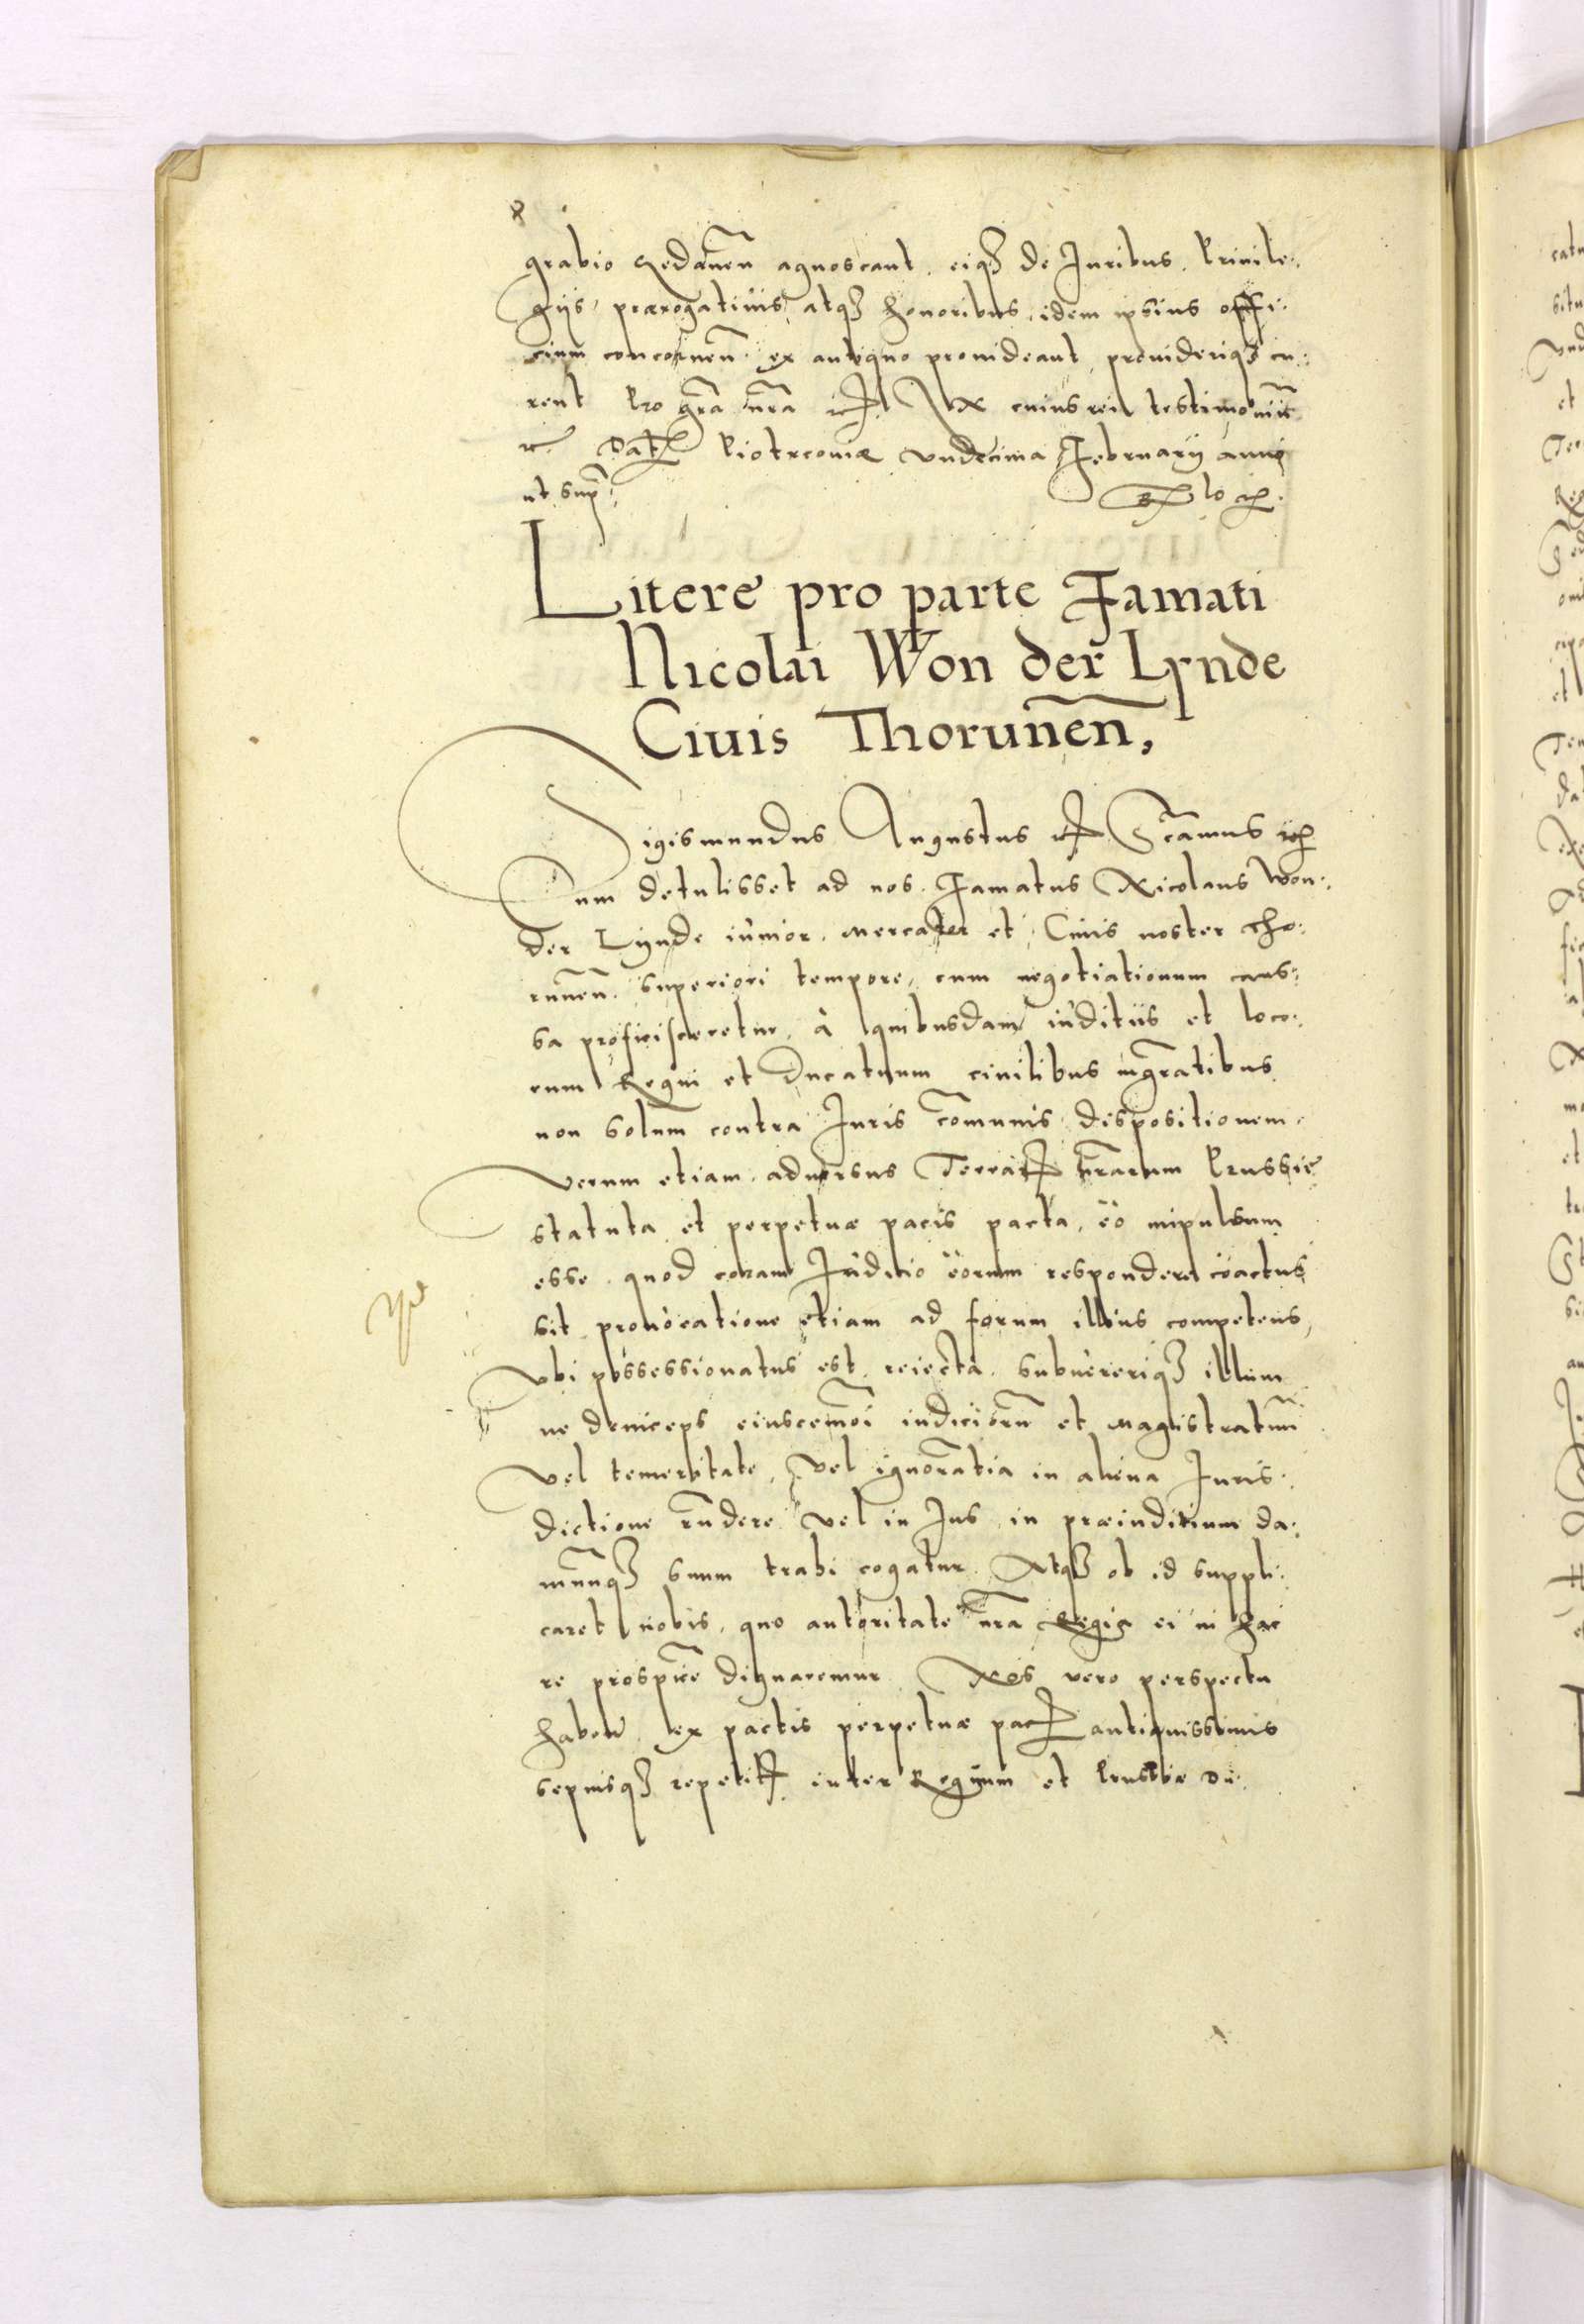 grabio Gedanen̄ agnoscant. eiqȝ de Iuribus. Priuile-
giis, prærogatiuis, atqȝ honoribus, idem ipsius offi-
cium concernen̄. ex antiquo prouideant, prouideriqȝ cu-
rent Pro gr̄a nr̄a In cuius rei testimoniū
Dat Piotrcouiæ vndecima February anni
ut supr̄
Litere pro parte Famati
Nicolai Won der Lynde
Ciuis Thorunen̄,
Sigismundus Augustus
Cum detulisset ad nos. Famatus Nicolaus Won-
der Lynde iunior. Mercator et Ciuis noster Tho-
runen̄. superiori tempore, cum negotiationum caus-
sa proficisceretur, à quibusdam iuditiis et loco-
rum Regni et Ducatuum ciuilibus mgr̄atibus
non solum contra Iuris cōmunis dispositionem.
Verum etiam. aduersus Terrar nr̄arum Prussię
statuta et perpetuæ pacis pacta, eò impulsum
esse. quod coram Iuditio eorum respondere coactus
sit prouocatione etiam ad forum illius competens,
Vbi possessionatus est. reiecta. subuereriqȝ illum
ne deinceps eiuscemōi iudiciorū et Magistratuū
Vel temeritate, Vel ignorātia in aliena Iuris-
dictione rn̄dere vel in Ius in præiuditium da-
mnūqȝ suum trahi cogatur. Atqȝ ob id suppli-
caret nobis. quo autoritate nr̄a Regia ei in hac
re prospicē dignaremur. Nos vero perspectū
haben̄ ex pactis perpetuæ pac antiquissimis
sepiusqȝ repetit inter Regnum et Prussiæ Du-